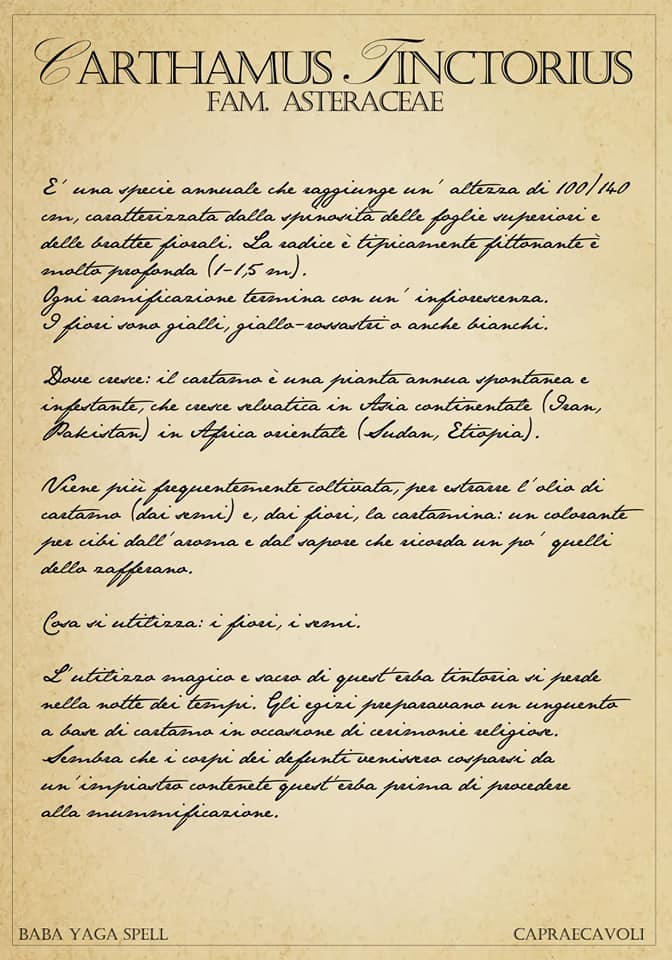 CARTHAMUS TINCTORIUS
FAM. ASTERACEAE
E' una specie annuale che raggiunge un' altezza di 100/140
cm, caratterizzata dalla spinosità delle foglie superiori e
delle brattee fiorali. La radice è tipicamente fittonante è
molto profonda (1-1,5 m).
Ogni ramificazione termina con un' infiorescenza.
I fiori sono gialli, giallo-rossastri o anche bianchi.
Dove cresce: il cartamo è una pianta annua spontanea e
infestante, che cresce selvatica in Asia continentale (Iran,
Pakistan) in Africa orientale (Sudan, Etiopia).
Viene più frequentemente coltivata, per estrarre l'olio di
cartamo (dai semi) e, dai fiori, la cartamina: un colorante
per cibi dall'aroma e dal sapore che ricorda un po' quelli
dello zafferano.
Cosa si utilizza: i fiori, i semi.
L'utilizzo magico e sacro di quest'erba tintoria si perde
nella notte dei tempi. Gli egizi preparavano un unguento
a base di cartamo in occasione di cerimonie religiose.
Sembra che i corpi dei defunti venissero cosparsi da
un'impiastro contenete quest'erba prima di procedere
alla mummificazione.
BABA YAGA SPELL
CAPRAECAVOLI